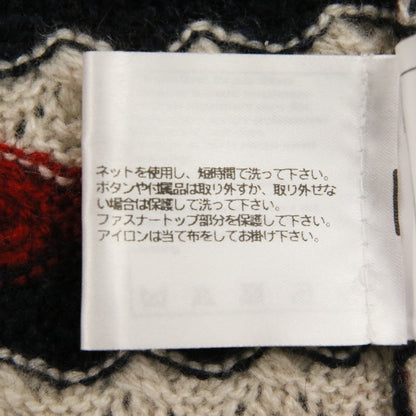 ネットを使用し、短時間で洗って下さい。
ボタンや付属品は取り外すか、取り外せな
い場合は保護して洗って下さい。
ファスナートップ部分を保護して下さい。
アイロンは当て布をしてお掛け下さい。